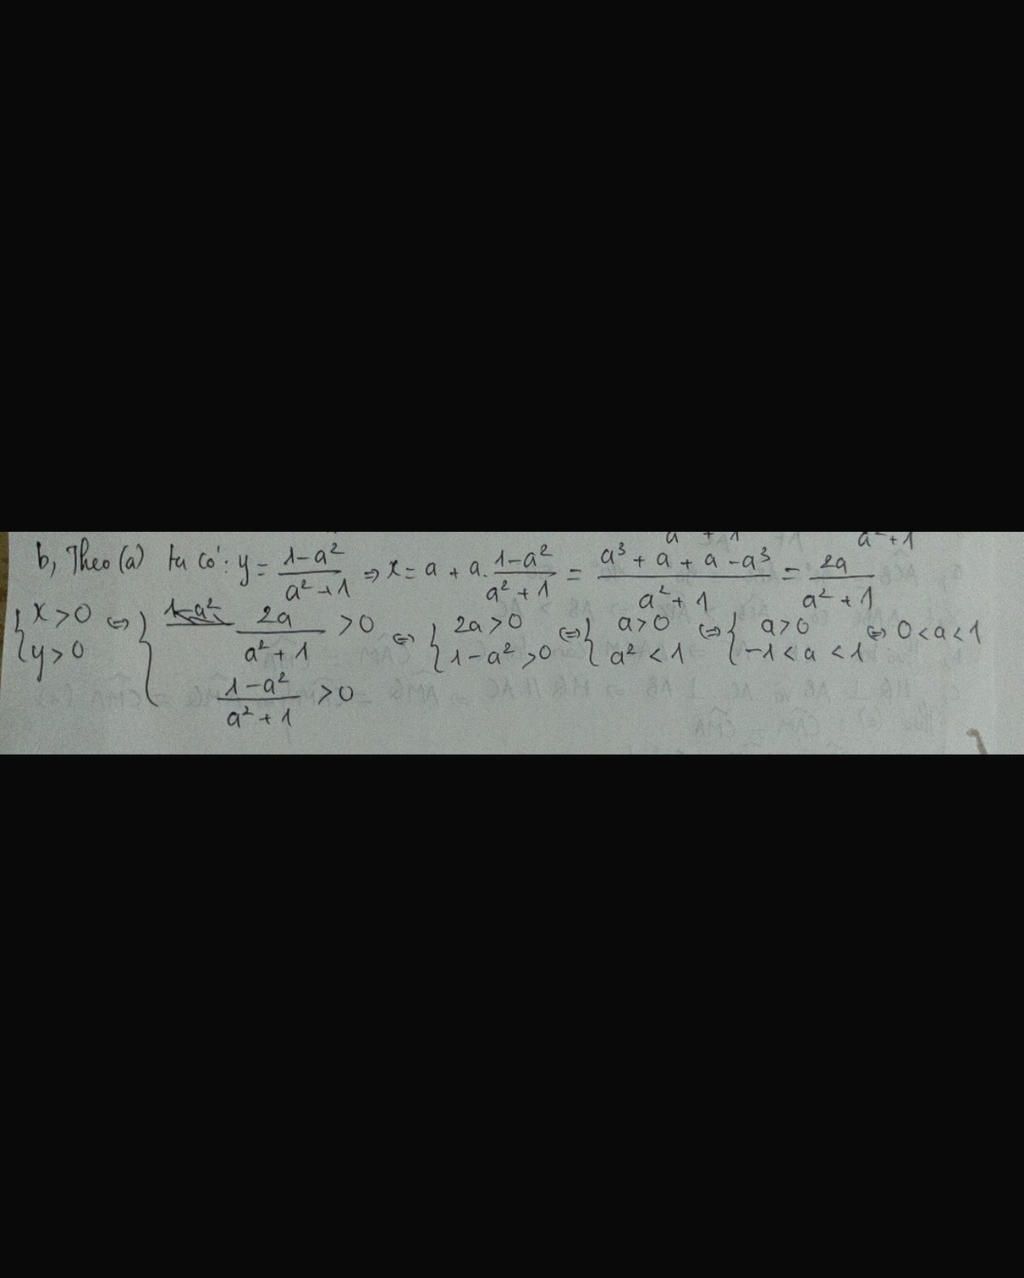 a² + 1 a² + 1
b, Theo (a) ta có: y = \frac{1-a²}{a²+1} ⇒ x = a + a. \frac{1-a²}{a²+1} = \frac{a³ + a + a - a³}{a² + 1} = \frac{2a}{a² + 1}
{ x > 0 ; y > 0 ⇔ { \frac{2a}{a² + 1} > 0 ; \frac{1-a²}{a² + 1} > 0 ⇔ { 2a > 0 ; 1 - a² > 0 ⇔ { a > 0 ; a² < 1 ⇔ { a > 0 ; -1 < a < 1 ⇔ 0 < a < 1